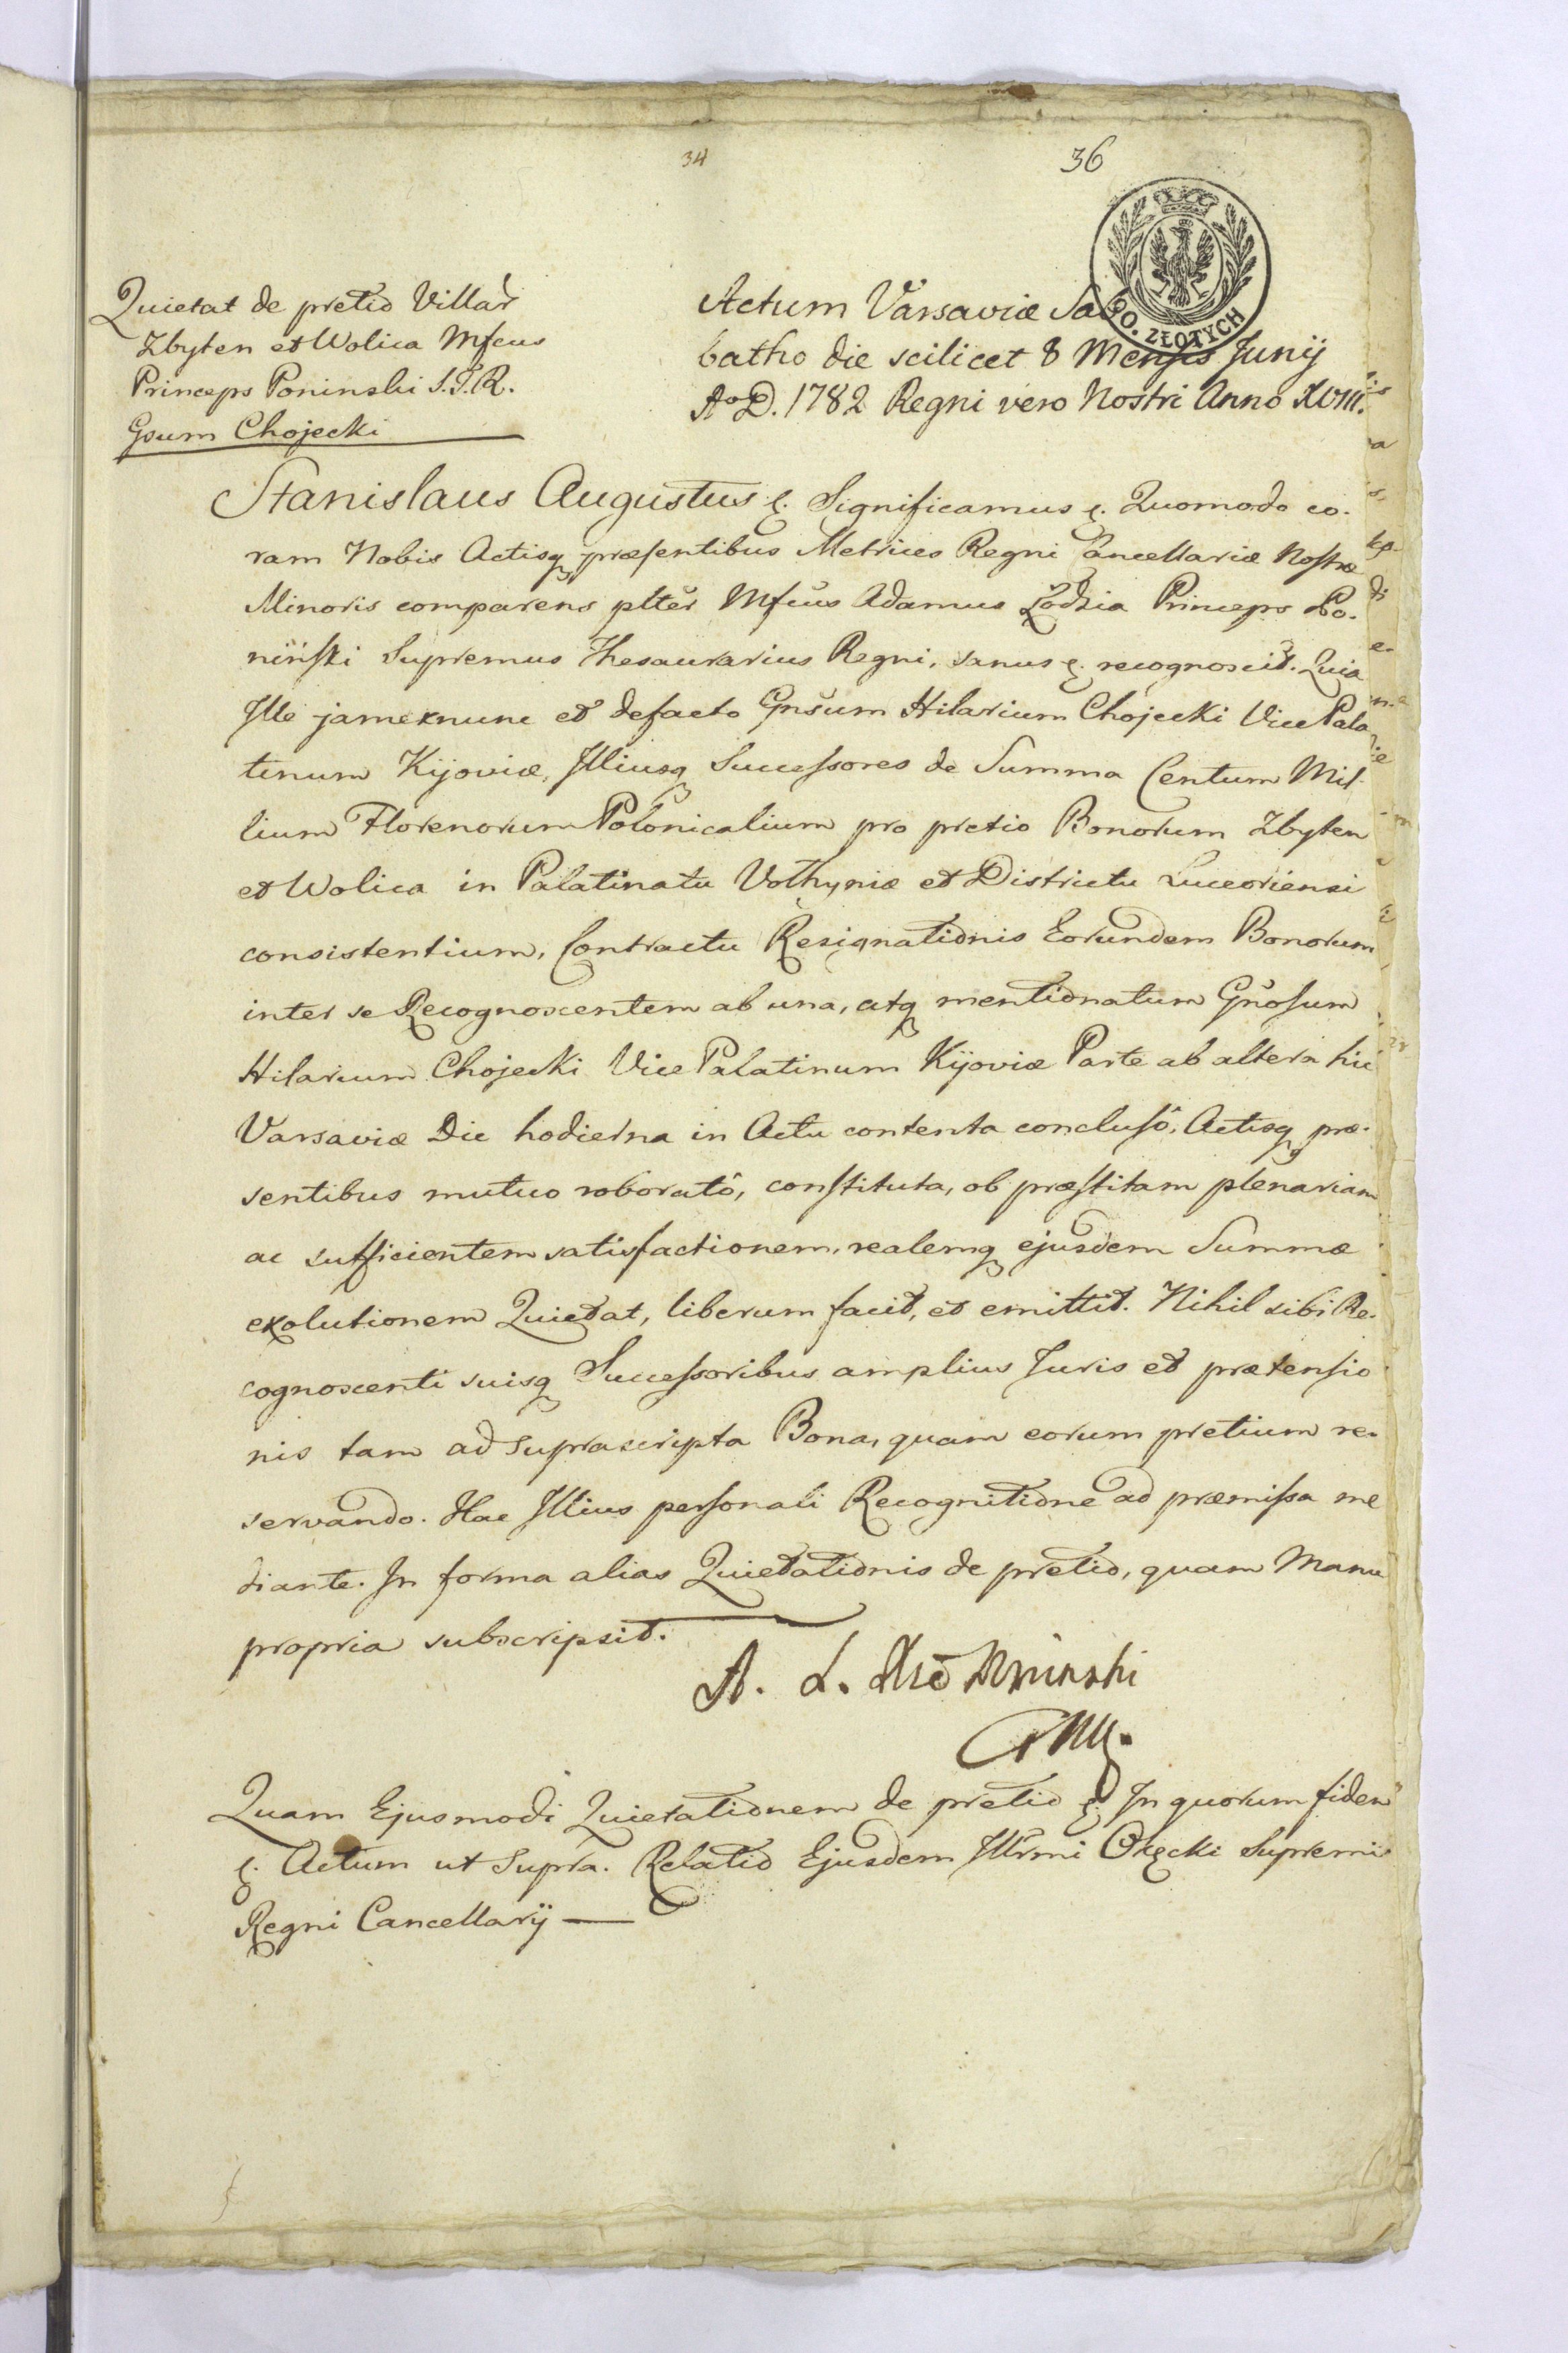 34
36
60. ZŁOTYCH
Quietat de pretio Villar
Zbyten et Wolica Mfcus
Princeps Poninski S.T.R.
Gsum Chojecki
Actum Varsaviæ Sab
batho die scilicet 8 Mensis Junij
A°D. 1782 Regni vero Nostri Anno XVIII.
Stanislaus Augustus &. Significamus &. Quomodo co-
ram Nobis Actisq præsentibus Metrices Regni Cancellariæ Nostræ
Minoris comparens plter Mfcus Adamus Łodzia Princeps Po-
niński Supremus Thesaurarius Regni, sanus &. recognoscit. Quia
Ille jam exnunc et defacto Gnsum Hilarium Chojecki Vice Pala
tinum Kijoviæ, Illiusq Successores de Summa Centum Mil-
lium Florenorum Polonicalium pro pretio Bonorum Zbyten
et Wolica in Palatinatu Volhyniæ et Districtu Luceoriensi
consistentium, Contractu Resignationis Eorundem Bonorum
inter se Recognoscentem ab una, atq mentionatum Gnosum
Hilarium Chojecki Vice Palatinum Kijoviæ Parte ab altera hic
Varsaviæ Die hodierna in Actu contenta conclusô, Actisq præ-
sentibus mutuo roboratô, constituta, ob præstitam plenariam
ac sufficientem satisfactionem, realemq ejusdem Summæ
exolutionem Quietat, liberum facit, et emittit. Nihil sibi Re-
cognoscenti suisq Successoribus amplius Juris et prætensio
nis tam ad suprascripta Bona, quam eorum pretium re-
servando. Hac Illius personali Recognitione ad præmissa me
diante. In forma alias Quietationis de pretio, quam Manu
propria subscripsit.
A. L.
Quam Ejusmodi Quietationem de pretio &. In quorum fidem
&. Actum ut Supra. Relatio Ejusdem Illrmi Okęcki Supremi
Regni Cancellarij